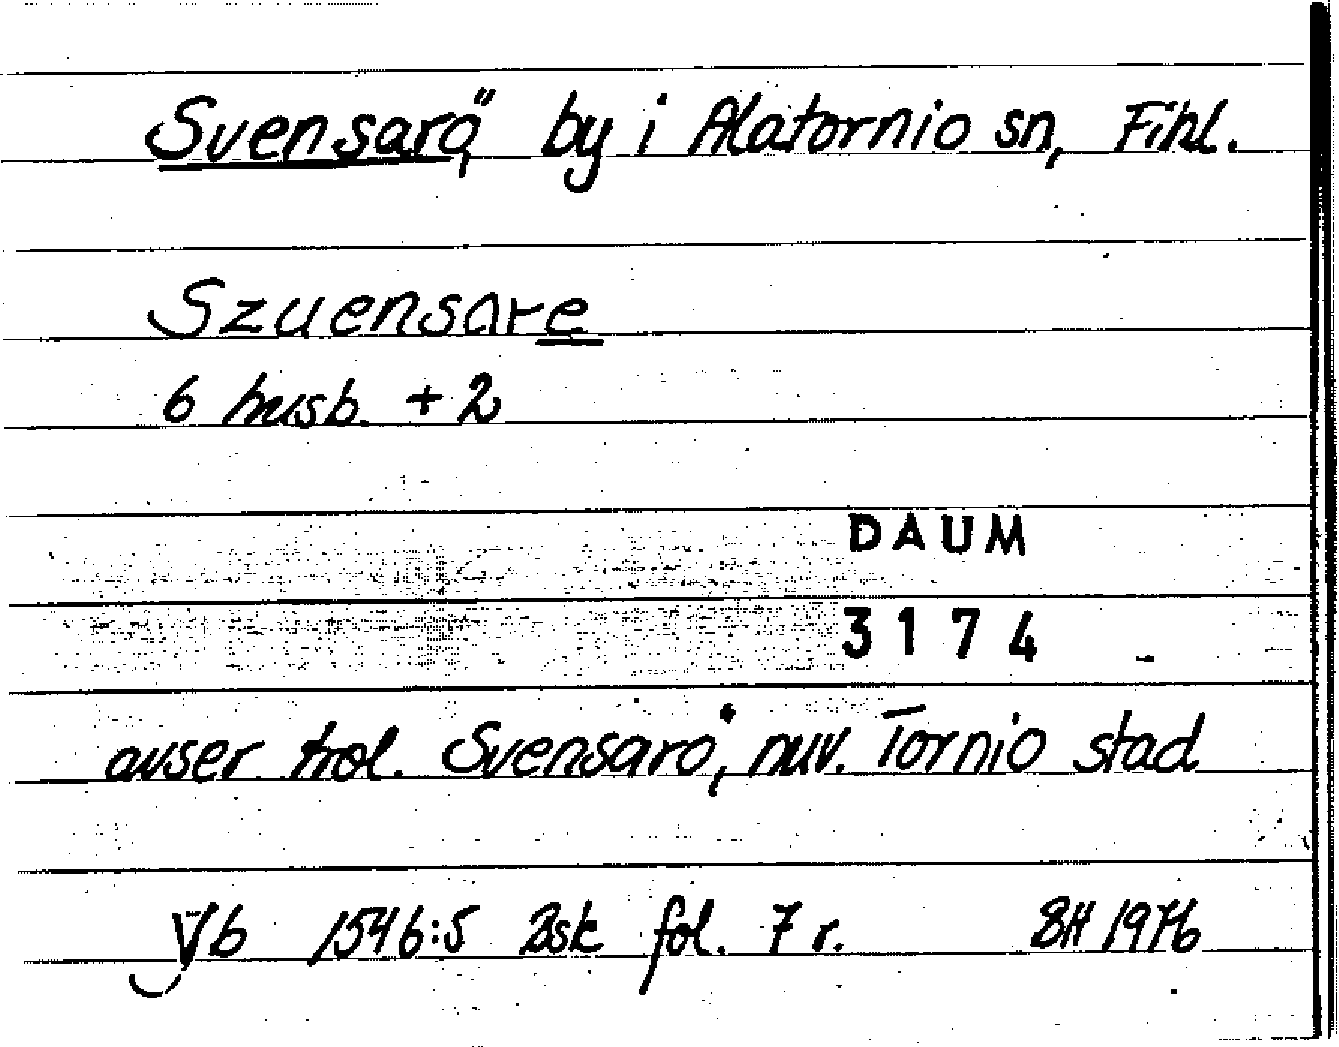 Svensarö, by i Alatornio sn, Finl.
Szuensare
6 husb. + 2
DAUM
3174
avser trol. Svensarö, nuv. Tornio stad
Jb 1546:5 Bsk fol. 7 r. BH 1976